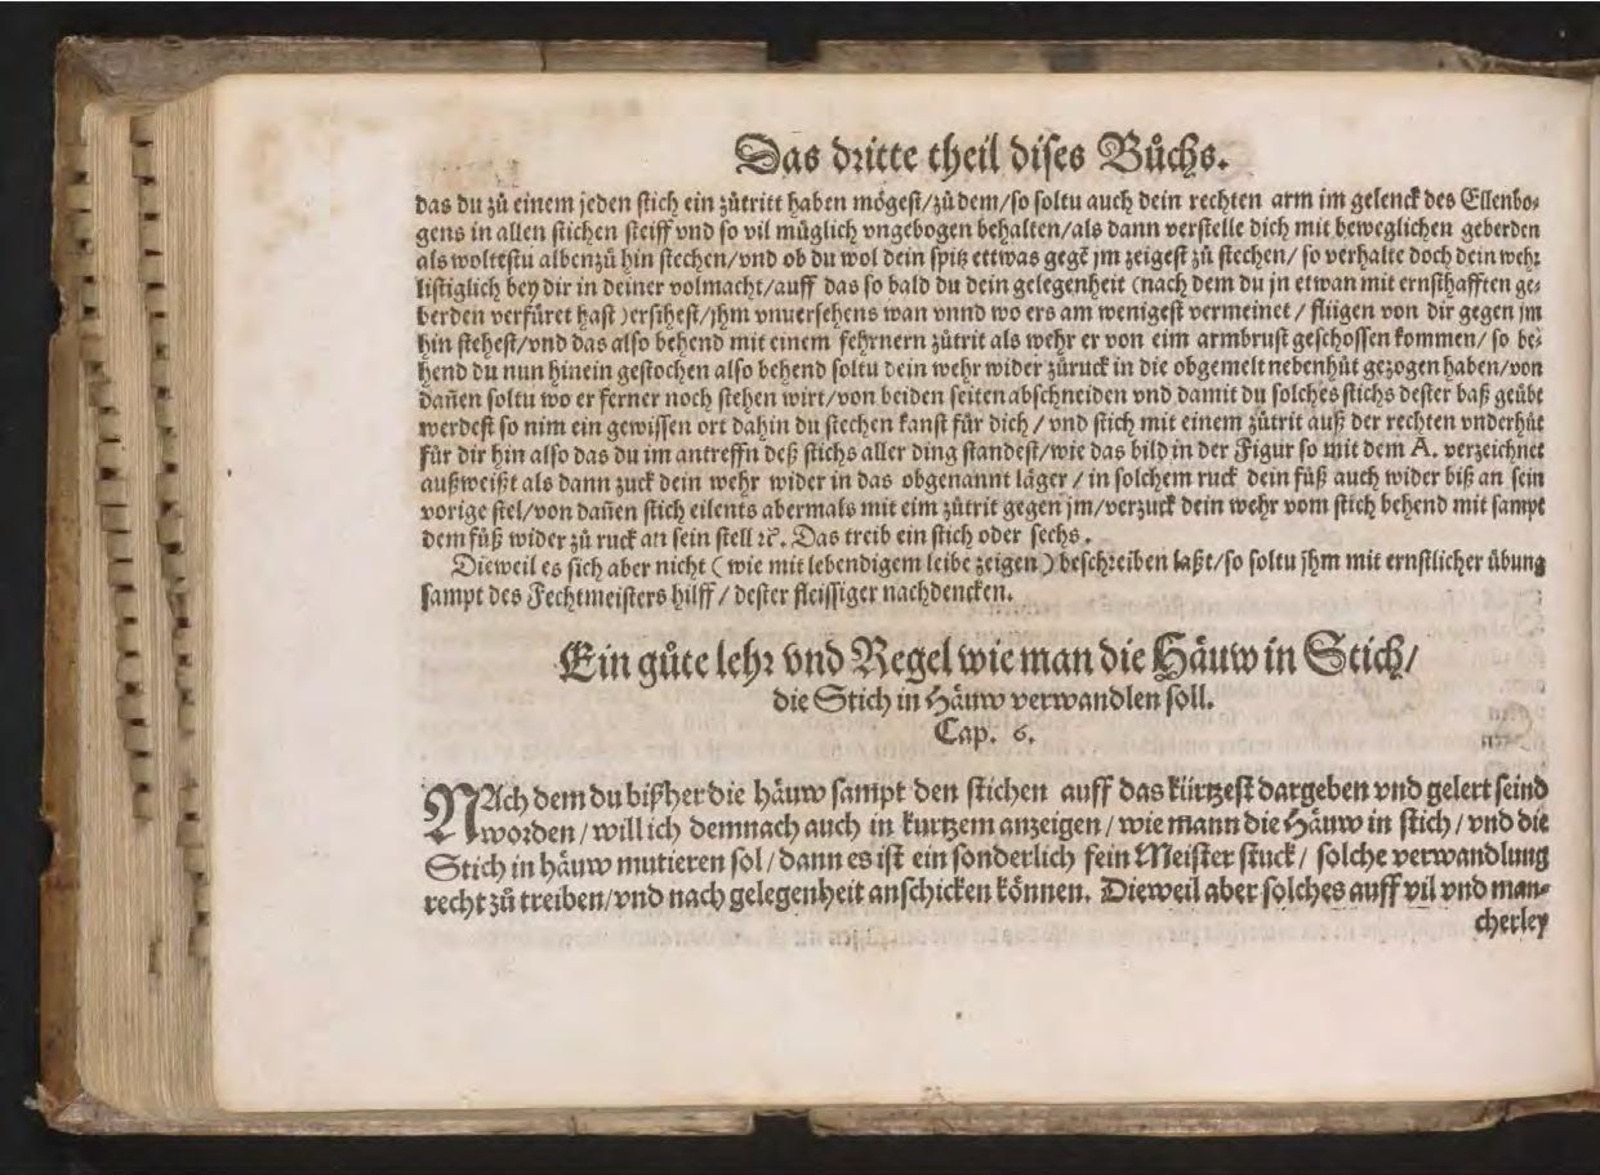 Das dritte theil dises Bůchs.
das du zů einem jeden stich ein zůtritt haben mögest/zů dem/so soltu auch dein rechten arm im gelenck des Ellenbo⸗
gens in allen stichen steiff vnd so vil müglich vngebogen behalten/als dann verstelle dich mit beweglichen geberden
als woltestu albenzů hin stechen/vnd ob du wol dein spitz ettwas gegẽ jm zeigest zů stechen/ so verhalte doch dein wehr
listiglich bey dir in deiner volmacht/auff das so bald du dein gelegenheit (nach dem du jn etwan mit ernsthafften ge⸗
berden verfüret hast) ersihest/jhm vnuersehens wan vnnd wo ers am wenigest vermeinet / flügen von dir gegen jm
hin stehest/vnd das also behend mit einem fehrnern zůtrit als wehr er von eim armbrust geschossen kommen/ so be⸗
hend du nun hinein gestochen also behend soltu dein wehr wider zůruck in die obgemelt nebenhůt gezogen haben/von
dañen soltu wo er ferner noch stehen wirt/von beiden seiten abschneiden vnd damit du solches stichs dester baß geübt
werdest so nim ein gewissen ort dahin du stechen kanst für dich / vnd stich mit einem zůtrit auß der rechten vnderhůt
für dir hin also das du im antreffn deß stichs aller ding standest/wie das bild in der Figur so mit dem A. verzeichnet
außweißt als dann zuck dein wehr wider in das obgenannt läger / in solchem ruck dein fůß auch wider biß an sein
vorige stel/von dañen stich eilents abermals mit eim zůtrit gegen jm/verzuck dein wehr vom stich behend mit sampt
dem fůß wider zů ruck an sein stell ꝛc̃. Das treib ein stich oder sechs.
Dieweil es sich aber nicht ( wie mit lebendigem leibe zeigen ) beschreiben laßt/so soltu jhm mit ernstlicher übung
sampt des Fechtmeisters hilff / dester fleissiger nachdencken.
Ein gůte lehr vnd Regel wie man die Häuw in Stich/
die Stich in Häuw verwandlen soll.
Cap. 6.
NAch dem du bißher die häuw sampt den stichen auff das kürtzest dargeben vnd gelert seind
worden / will ich demnach auch in kurtzem anzeigen / wie mann die Häuw in stich / vnd die
Stich in häuw mutieren sol / dann es ist ein sonderlich fein Meister stuck / solche verwandlung
recht zů treiben/vnd nach gelegenheit anschicken können. Dieweil aber solches auff vil vnd man⸗
cherley